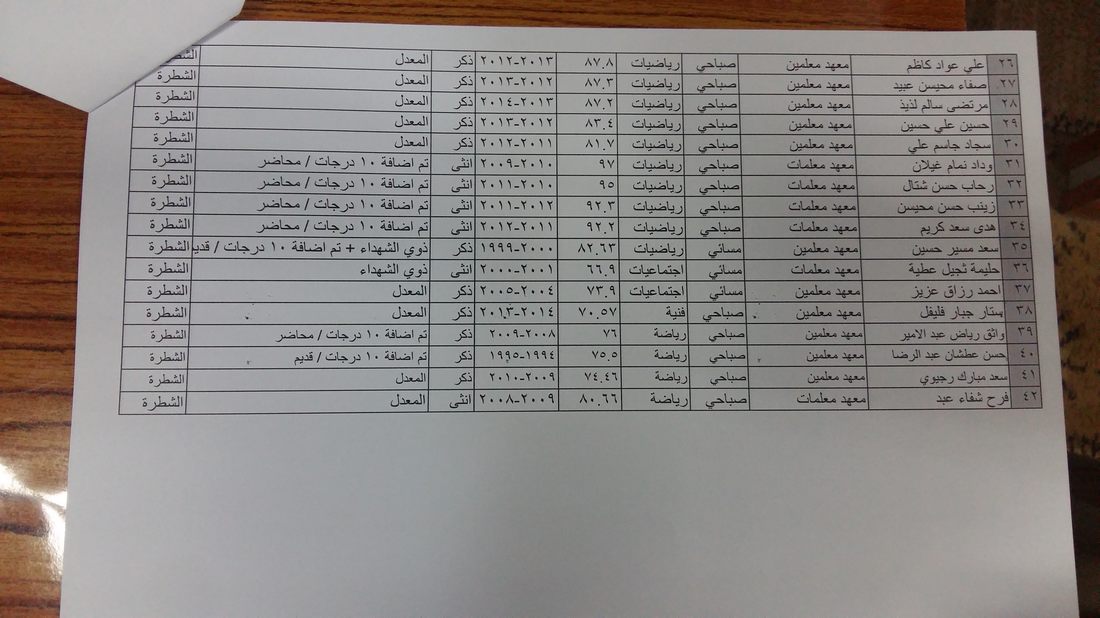 ٢٦ علي عواد كاظم معهد معلمين صباحي رياضيات ٨٧.٨ ٢٠١٢-٢٠١٣ ذكر المعدل الشطرة
٢٧ صفاء محيسن عبيد معهد معلمين صباحي رياضيات ٨٧.٣ ٢٠١٣-٢٠١٢ ذكر المعدل الشطرة
٢٨ مرتضى سالم لذيذ معهد معلمين صباحي رياضيات ٨٧.٢ ٢٠١٤-٢٠١٣ ذكر المعدل الشطرة
٢٩ حسين علي حسين معهد معلمين صباحي رياضيات ٨٣.٤ ٢٠١٣-٢٠١٢ ذكر المعدل الشطرة
٣٠ سجاد جاسم علي معهد معلمين صباحي رياضيات ٨١.٧ ٢٠١٢-٢٠١١ ذكر المعدل الشطرة
٣١ وداد نمام غيلان معهد معلمات صباحي رياضيات ٩٧ ٢٠٠٩-٢٠١٠ انثى تم اضافة ١٠ درجات / محاضر الشطرة
٣٢ رحاب حسن شتال معهد معلمات صباحي رياضيات ٩٥ ٢٠١١-٢٠١٠ انثى تم اضافة ١٠ درجات / محاضر الشطرة
٣٣ زينب حسن محيسن معهد معلمات صباحي رياضيات ٩٢.٣ ٢٠١١-٢٠١٢ انثى تم اضافة ١٠ درجات / محاضر الشطرة
٣٤ هدى سعد كريم معهد معلمات صباحي رياضيات ٩٢.٢ ٢٠١٢-٢٠١١ انثى تم اضافة ١٠ درجات / محاضر الشطرة
٣٥ سعد مسير حسين معهد معلمين مسائي رياضيات ٨٢.٦٣ ١٩٩٩-٢٠٠٠ ذكر ذوي الشهداء + تم اضافة ١٠ درجات / قديم الشطرة
٣٦ حليمة ثجيل عطية معهد معلمات مسائي اجتماعيات ٦٦.٩ ٢٠٠٠-٢٠٠١ انثى ذوي الشهداء الشطرة
٣٧ احمد رزاق عزيز معهد معلمين مسائي اجتماعيات ٧٣.٩ ٢٠٠٥-٢٠٠٤ ذكر المعدل الشطرة
٣٨ ستار جبار فليفل معهد معلمين صباحي فنية ٧٠.٥٧ ٢٠١٣-٢٠١٤ ذكر المعدل الشطرة
٣٩ واثق رياض عبد الامير معهد معلمين صباحي رياضة ٧٦ ٢٠٠٩-٢٠٠٨ ذكر تم اضافة ١٠ درجات / محاضر الشطرة
٤٠ حسن عطشان عبد الرضا معهد معلمين صباحي رياضة ٧٥.٥ ١٩٩٥-١٩٩٤ ذكر تم اضافة ١٠ درجات / قديم الشطرة
٤١ سعد مبارك رجيوي معهد معلمين صباحي رياضة ٧٤.٤٦ ٢٠١٠-٢٠٠٩ ذكر المعدل الشطرة
٤٢ فرح شفاء عبد معهد معلمات صباحي رياضة ٨٠.٦٦ ٢٠٠٨-٢٠٠٩ انثى المعدل الشطرة